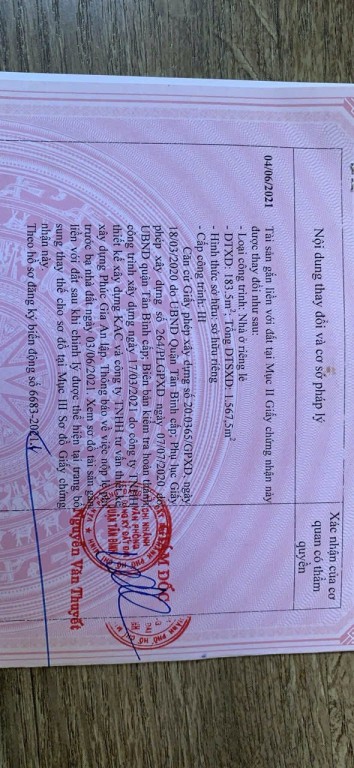 Nội dung thay đổi và cơ sở pháp lý
Xác nhận của cơ
quan có thẩm
quyền
04/06/2021
Tài sản gắn liền với đất tại Mục II Giấy chứng nhận này
được thay đổi như sau:
- Loại công trình: Nhà ở riêng lẻ
- DTXD: 183,5m². Tổng DTSXD: 1.567,5m²
- Hình thức sở hữu: sở hữu riêng
- Cấp công trình: III
Căn cứ Giấy phép xây dựng số 20.0365/GPXD, ngày
18/03/2020 do UBND Quận Tân Bình cấp; Phụ lục Giấy
phép xây dựng số 264/PLGPXD ngày 07/07/2020 do
UBND quận Tân Bình cấp; Biên bản kiểm tra hoàn thành
công trình xây dựng ngày 17/03/2021 do công ty TNHH
thiết kế xây dựng KAC và công ty TNHH tư vấn thiết kế
xây dựng Phúc Gia An lập. Thông báo về việc nộp lệ phí
trước bạ nhà đất ngày 03/06/2021. Xem sơ đồ tài sản gắn
liền với đất sau khi chỉnh lý được thể hiện tại trang bổ
sung thay thế cho sơ đồ tại Mục III Sơ đồ Giấy chứng
nhận này.
Theo hồ sơ đăng ký biến động số 6683-2021
GIÁM ĐỐC
CHI NHÁNH
VĂN PHÒNG
ĐĂNG KÝ ĐẤT ĐAI
QUẬN TÂN BÌNH
Nguyễn Văn Thuyết